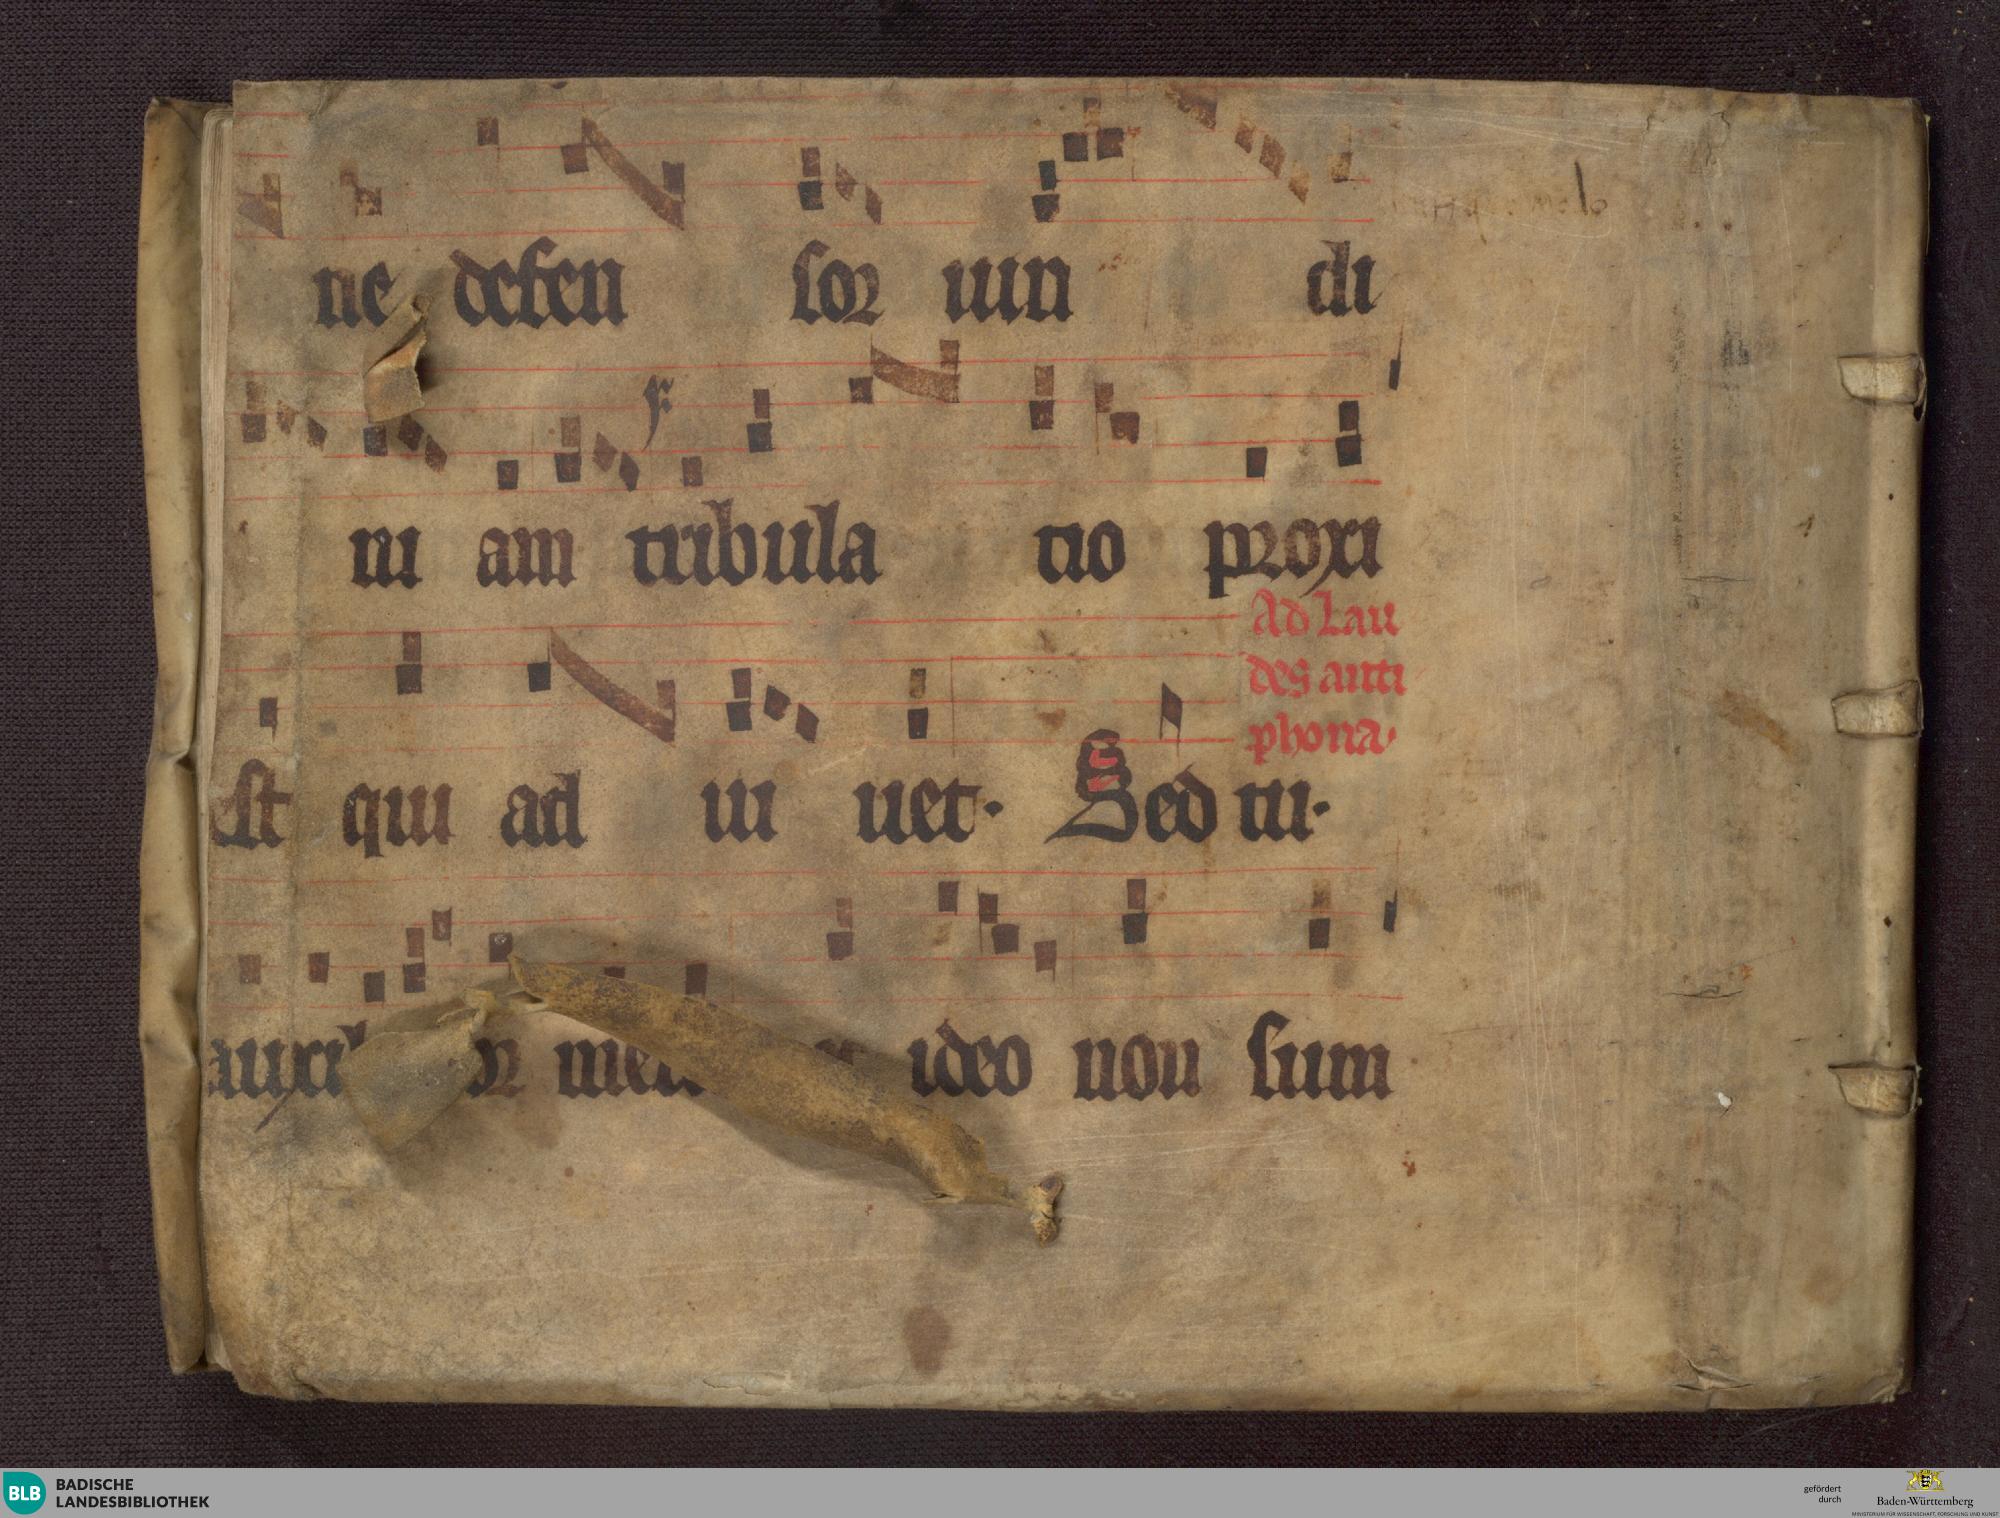 ne defen sor uin di
ni am tribula tio proxi
Ad Lau
des anti
phona.
est qui ad iu uet. Sed tu.
ideo non sum
BLB BADISCHE
LANDESBIBLIOTHEK
gefördert
durch
Baden-Württemberg
MINISTERIUM FÜR WISSENSCHAFT, FORSCHUNG UND KUNST